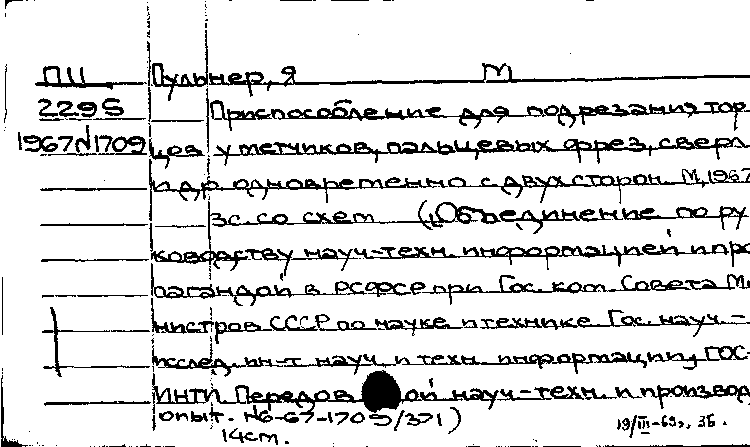 ПШ Пульнер, Я М
2295 Приспособление для подрезания тор
1967/1709 цов у метчиков, пальцевых фрез, сверл
и др. одновременно с двух сторон. М, 1967
3с. со схем ("Объединение по ру
ководству науч-техн. информацией и про
пагандой в РСФСР при Гос. ком. Совета Ми
нистров СССР по науке и технике. Гос. науч. -
исслед. ин-т науч. и техн. информации, ГОС
ИНТИ Передов ой науч-техн. и производ
опыт. №6-67-1709/371)
14см. 19/III-69г. ЗБ.